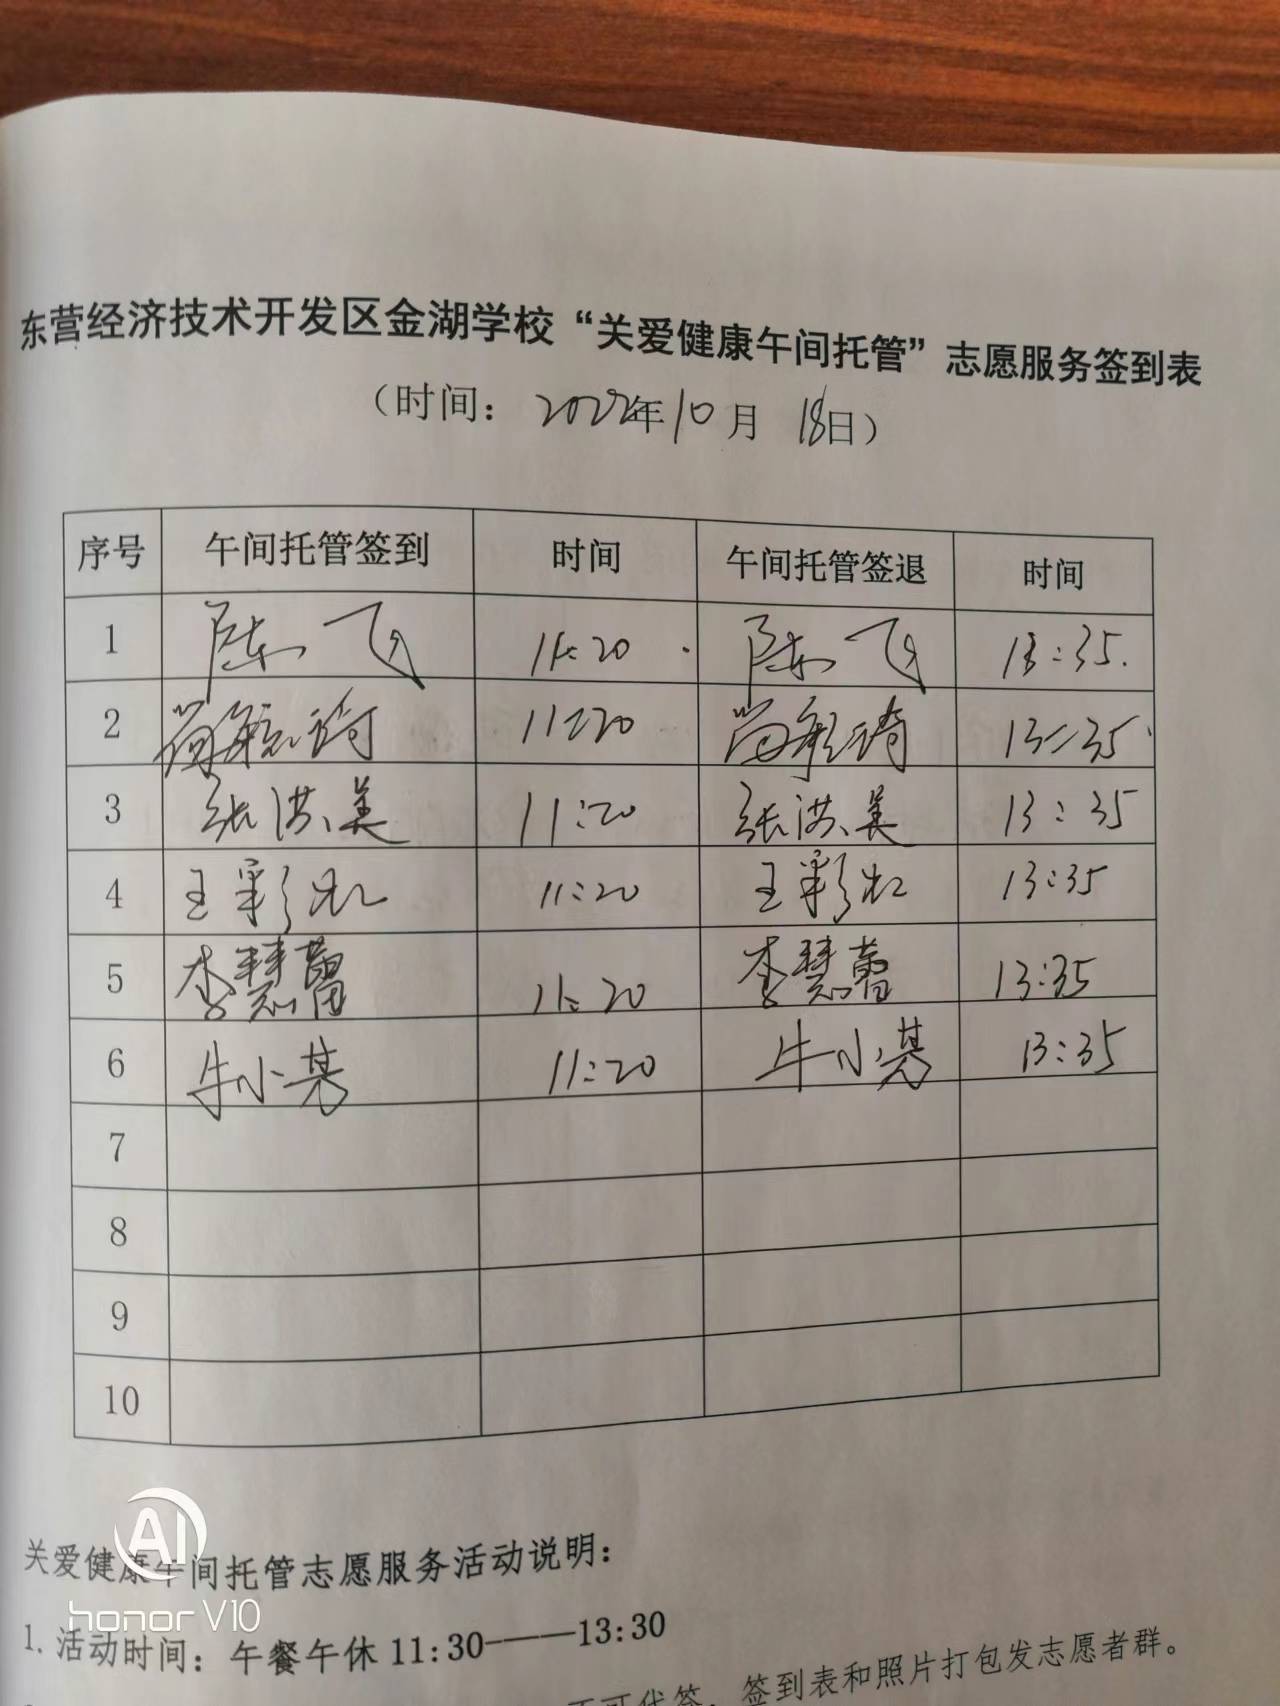 东营经济技术开发区金湖学校“关爱健康午间托管”志愿服务签到表
（时间：2022年10月18日）
序号 午间托管签到 时间 午间托管签退 时间
1 陈飞 11:20 陈飞 13:35
2 尚毓琦 11:20 尚毓琦 13:35
3 张洪美 11:20 张洪美 13:35
4 王彩虹 11:20 王彩虹 13:35
5 李慧蕾 11:20 李慧蕾 13:35
6 牛小 11:20 牛小 13:35
7
8
9
10
关爱健康午间托管志愿服务活动说明：
1. 活动时间：午餐午休 11:30——13:30
不可代签，签到表和照片打包发志愿者群。
AI
honor V10